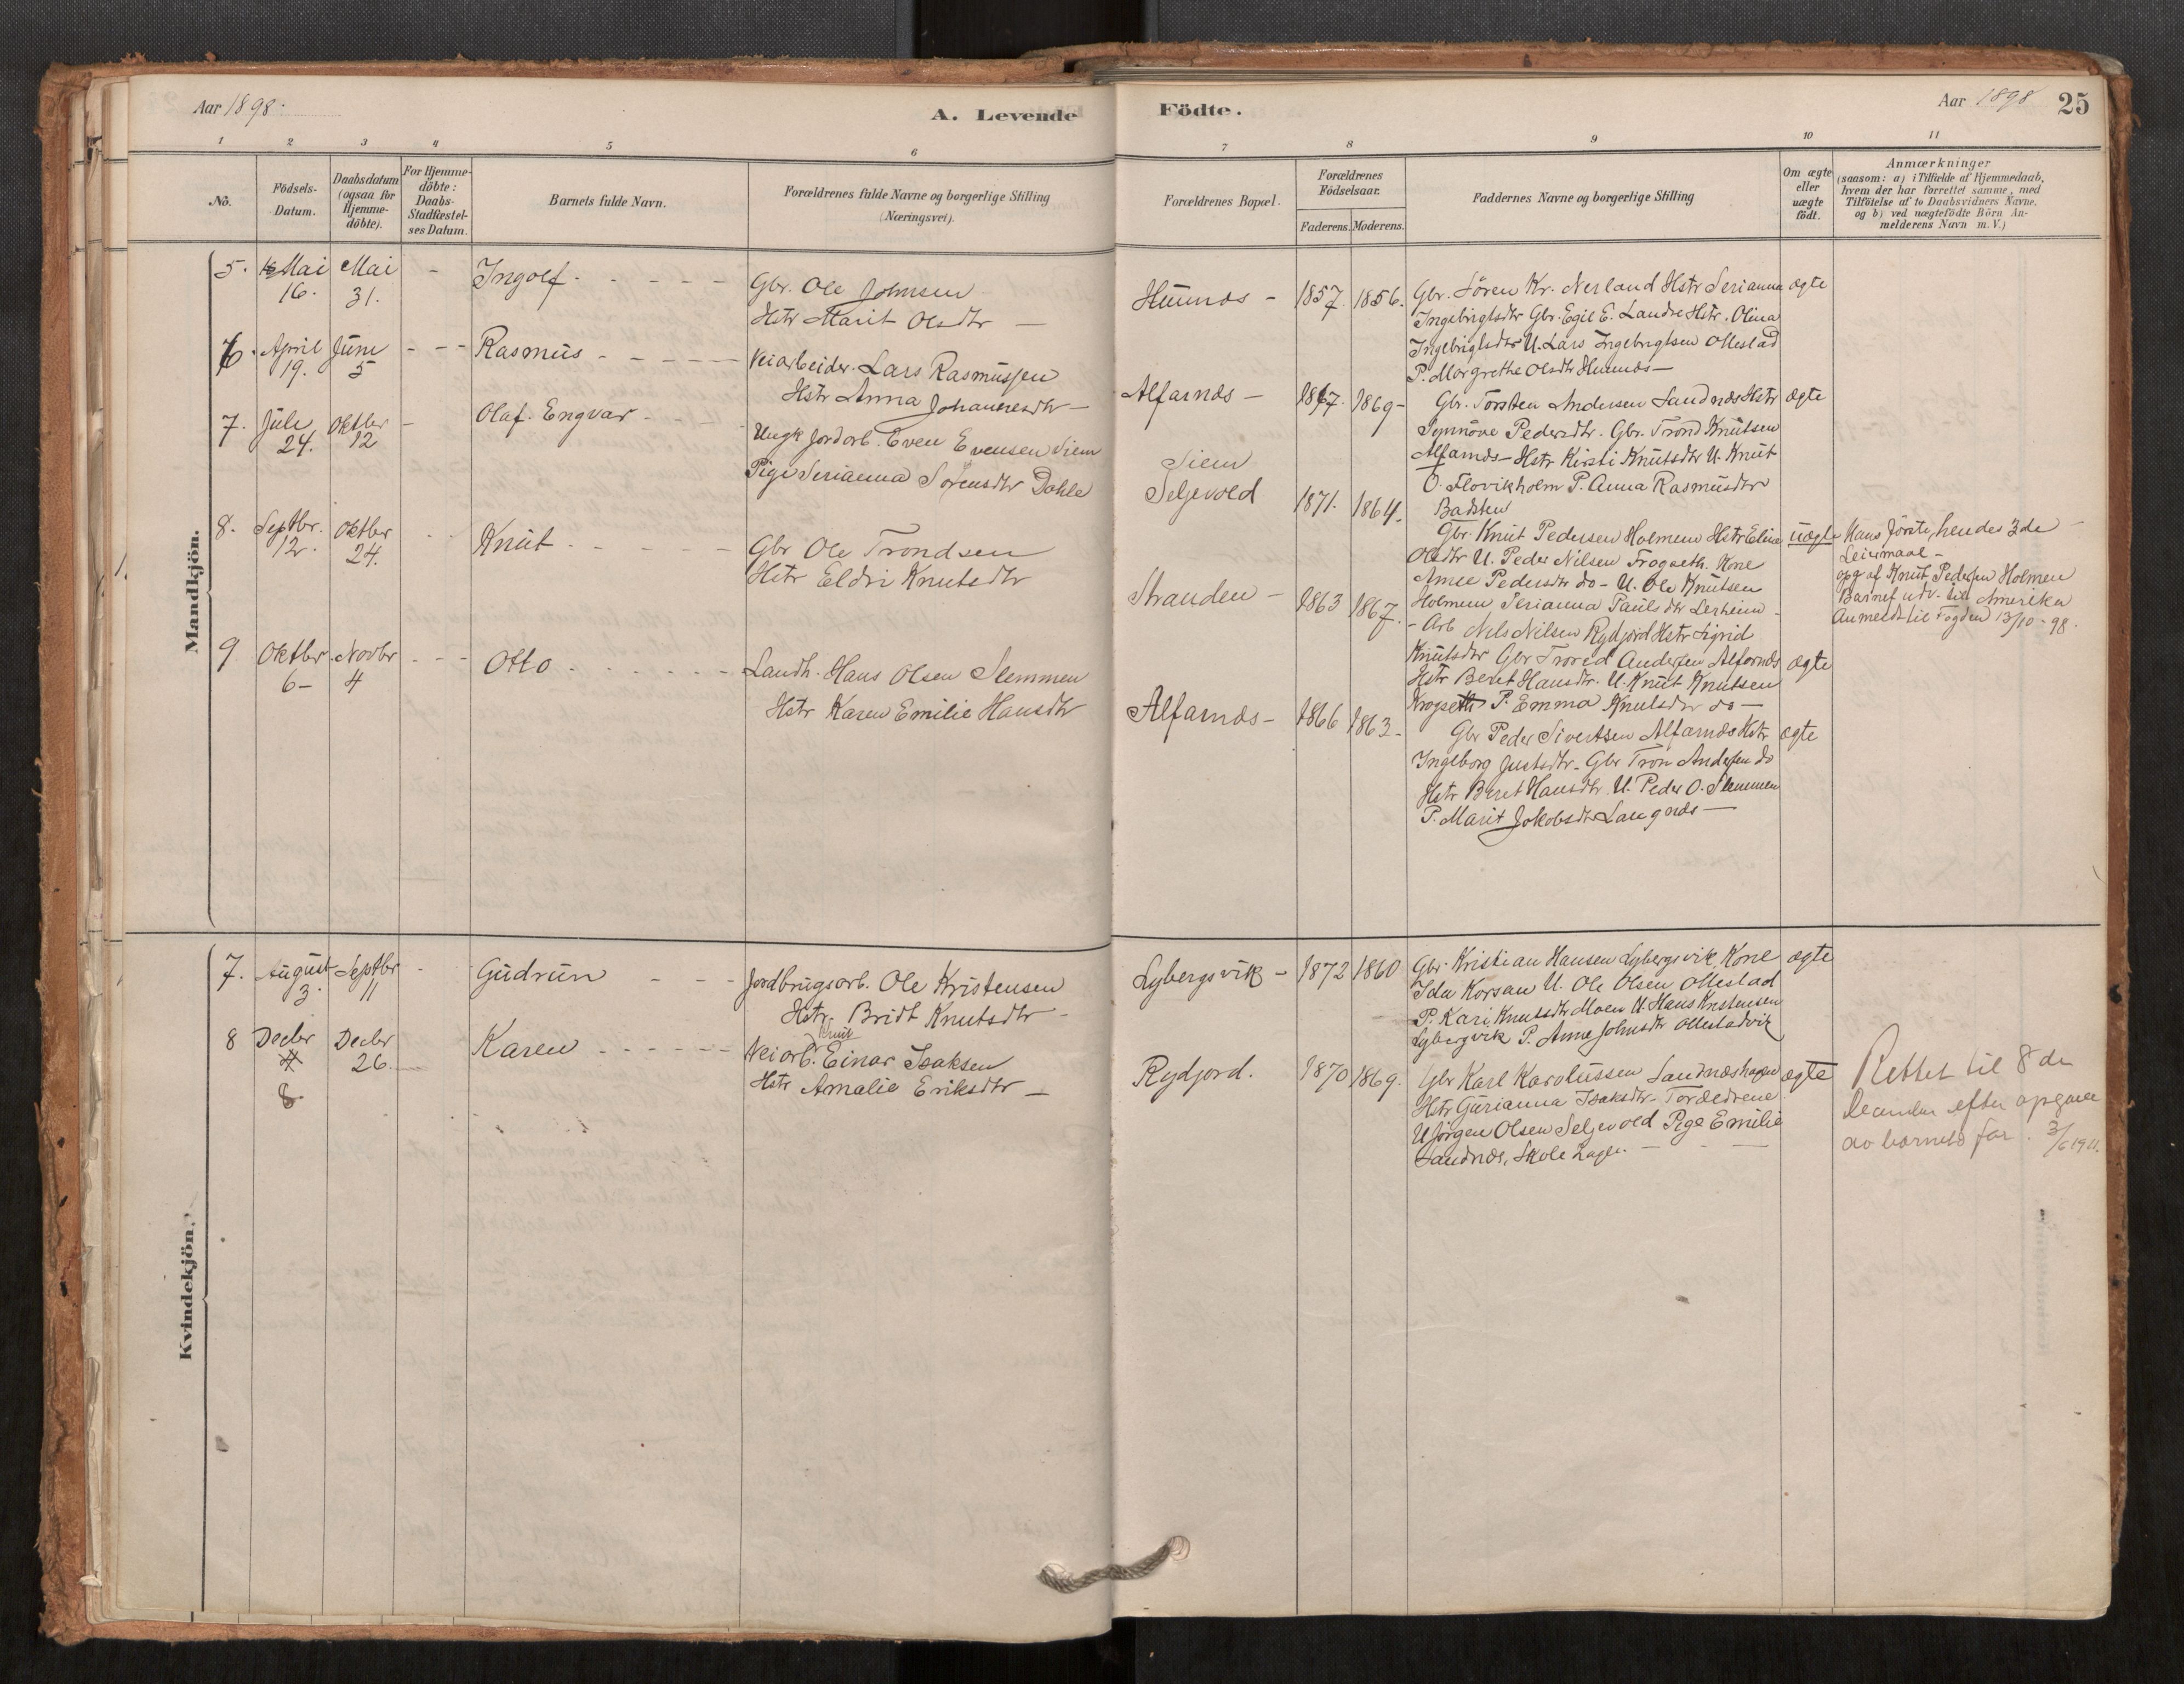 Aar 1898.
A. Levende
1 2 3 4 5 6
No.
Födsels-
Datum.
Daabsdatum
(ogsaa for
Hjemme-
döbte).
For Hjemme-
döbte:
Daabs-
Stadfæstel-
ses Datum.
Barnets fulde Navn.
Forældrenes fulde Navne og borgerlige Stilling
(Næringsvei).
Mandkjön.
5. Mai Mai - Ingolf - - - - Gbr. Ole Johnsen
16. 31. Hstr Marit Olsdtr -
6. April Juni - - - Rasmus - - - - Veiarbeider Lars Rasmussen
19. 5 Hstr Anna Johannesdtr -
7. Juli Oktber - Olaf Engvar - Ungk Jordarb. Even Evensen Siem
24. 12 Pige Serianna Sörensdtr Dahle
8. Septbr. Oktbr - - Knut - - - - Gbr Ole Trondsen
12. 24. Hstr Eldri Knutsdtr
9 Oktbr. Novbr - - - Otto - - - - - Landh. Hans Olsen Slemmen
6- 4 Hstr Karen Emilie Hansdtr
Kvindekjön.
7. August Septbr - Gudrun - - - Jordbrugsarb. Ole Kristensen
3. 11 Hstr. Bridt Knutsdtr -
8 Decbr Decbr Karen - - - - - Veiarb. Einar Isaksen
Knut
26. Hstr Amalie Eriksdtr -
8.
Födte.
Aar 1898 25
7 8 9 10 11
Forældrenes Bopæl.
Forældrenes
Födselsaar.
Faderens. Moderens.
Faddernes Navne og borgerlige Stilling
Om ægte
eller
uægte
födt.
Anmærkninger
(saasom: a) i Tilfælde af Hjemmedaab,
hvem der har forrettet samme, med
Tilföielse af to Daabsvidners Navne,
og b) ved uægtefödte Börn An-
melderens Navn m. V.)
Humnes - 1857. 1856. Gbr. Sören Kr. Nerland Hstr Serianna ægte
Ingebrigtsdtr Gbr. Egil E. Landre Hstr. Olina
Ingebrigtsdtr U. Lars Ingebrigtsen Ollestad
P. Margrethe Olsdtr Humnes -
Alfarnæs - 1867. 1869 - Gbr. Torsten Andersen Sandnæs Hstr ægte
Synnöve Pedersdtr. Gbr. Trond Knutsen
Alfarnæs - Hstr Kirsti Knutsdtr U. Knut
O. Flovikholm P. Anna Rasmusdtr
Siem
Seljevold 1871. 1864.
Gbr. Knut Pedersen Holmem Hstr Eline uægte
Olsdtr U. Peder Nilsen Frogseth. Kone
Amee Pedersdtr do - U. Ole Knutsen
Holmem, Serianna Paulsdtr Lerheim -
Hans förste, hendes 3de
Leiermaal -
opg af Knut Pedersen Holmen
Barnef. udv. til Amerika
Anmeldt til Fogden 13/10 - 98.
Stranden - 1863 1867. - Arb Nels Nilsen Rydjord Hstr Sigrid
Knutsdtr Gbr Trond Andersen Alfarnæs ægte
Hstr Beret Hansdtr. U. Knut Knutsen
P. Emma Knutsdtr do -
Alfarnæs - 1866 1863 - Gbr Peder Sivertsen Alfarnæs Hstr ægte
Ingeborg Justsdtr - Gbr Tron Andersen do
Hstr Beret Hansdtr. U. Peder O. Slemmen
P. Marit Jakobsdtr Langnæs -
Lybergsvik - 1872 1860 Gbr. Kristian Hansen Lybergsvik, Kone ægte
Ida Korsan U. Ole Olsen Ollestad
P. Kari Knutsdtr Moen U. Hans Kristensen
Lybergsvik P. Anne Johnsdtr Ollestadvik
Rydjord. 1870 1869. Gbr Karl Karolussen Sandnæshagen ægte
Hstr Gurianna Isaksdtr - Forældrene
U Jörgen Olsen Seljevold Pige Emilie
Sandnæs,
Rettet til 8de
December efter opgave
av barnets far. 3/6 1911.